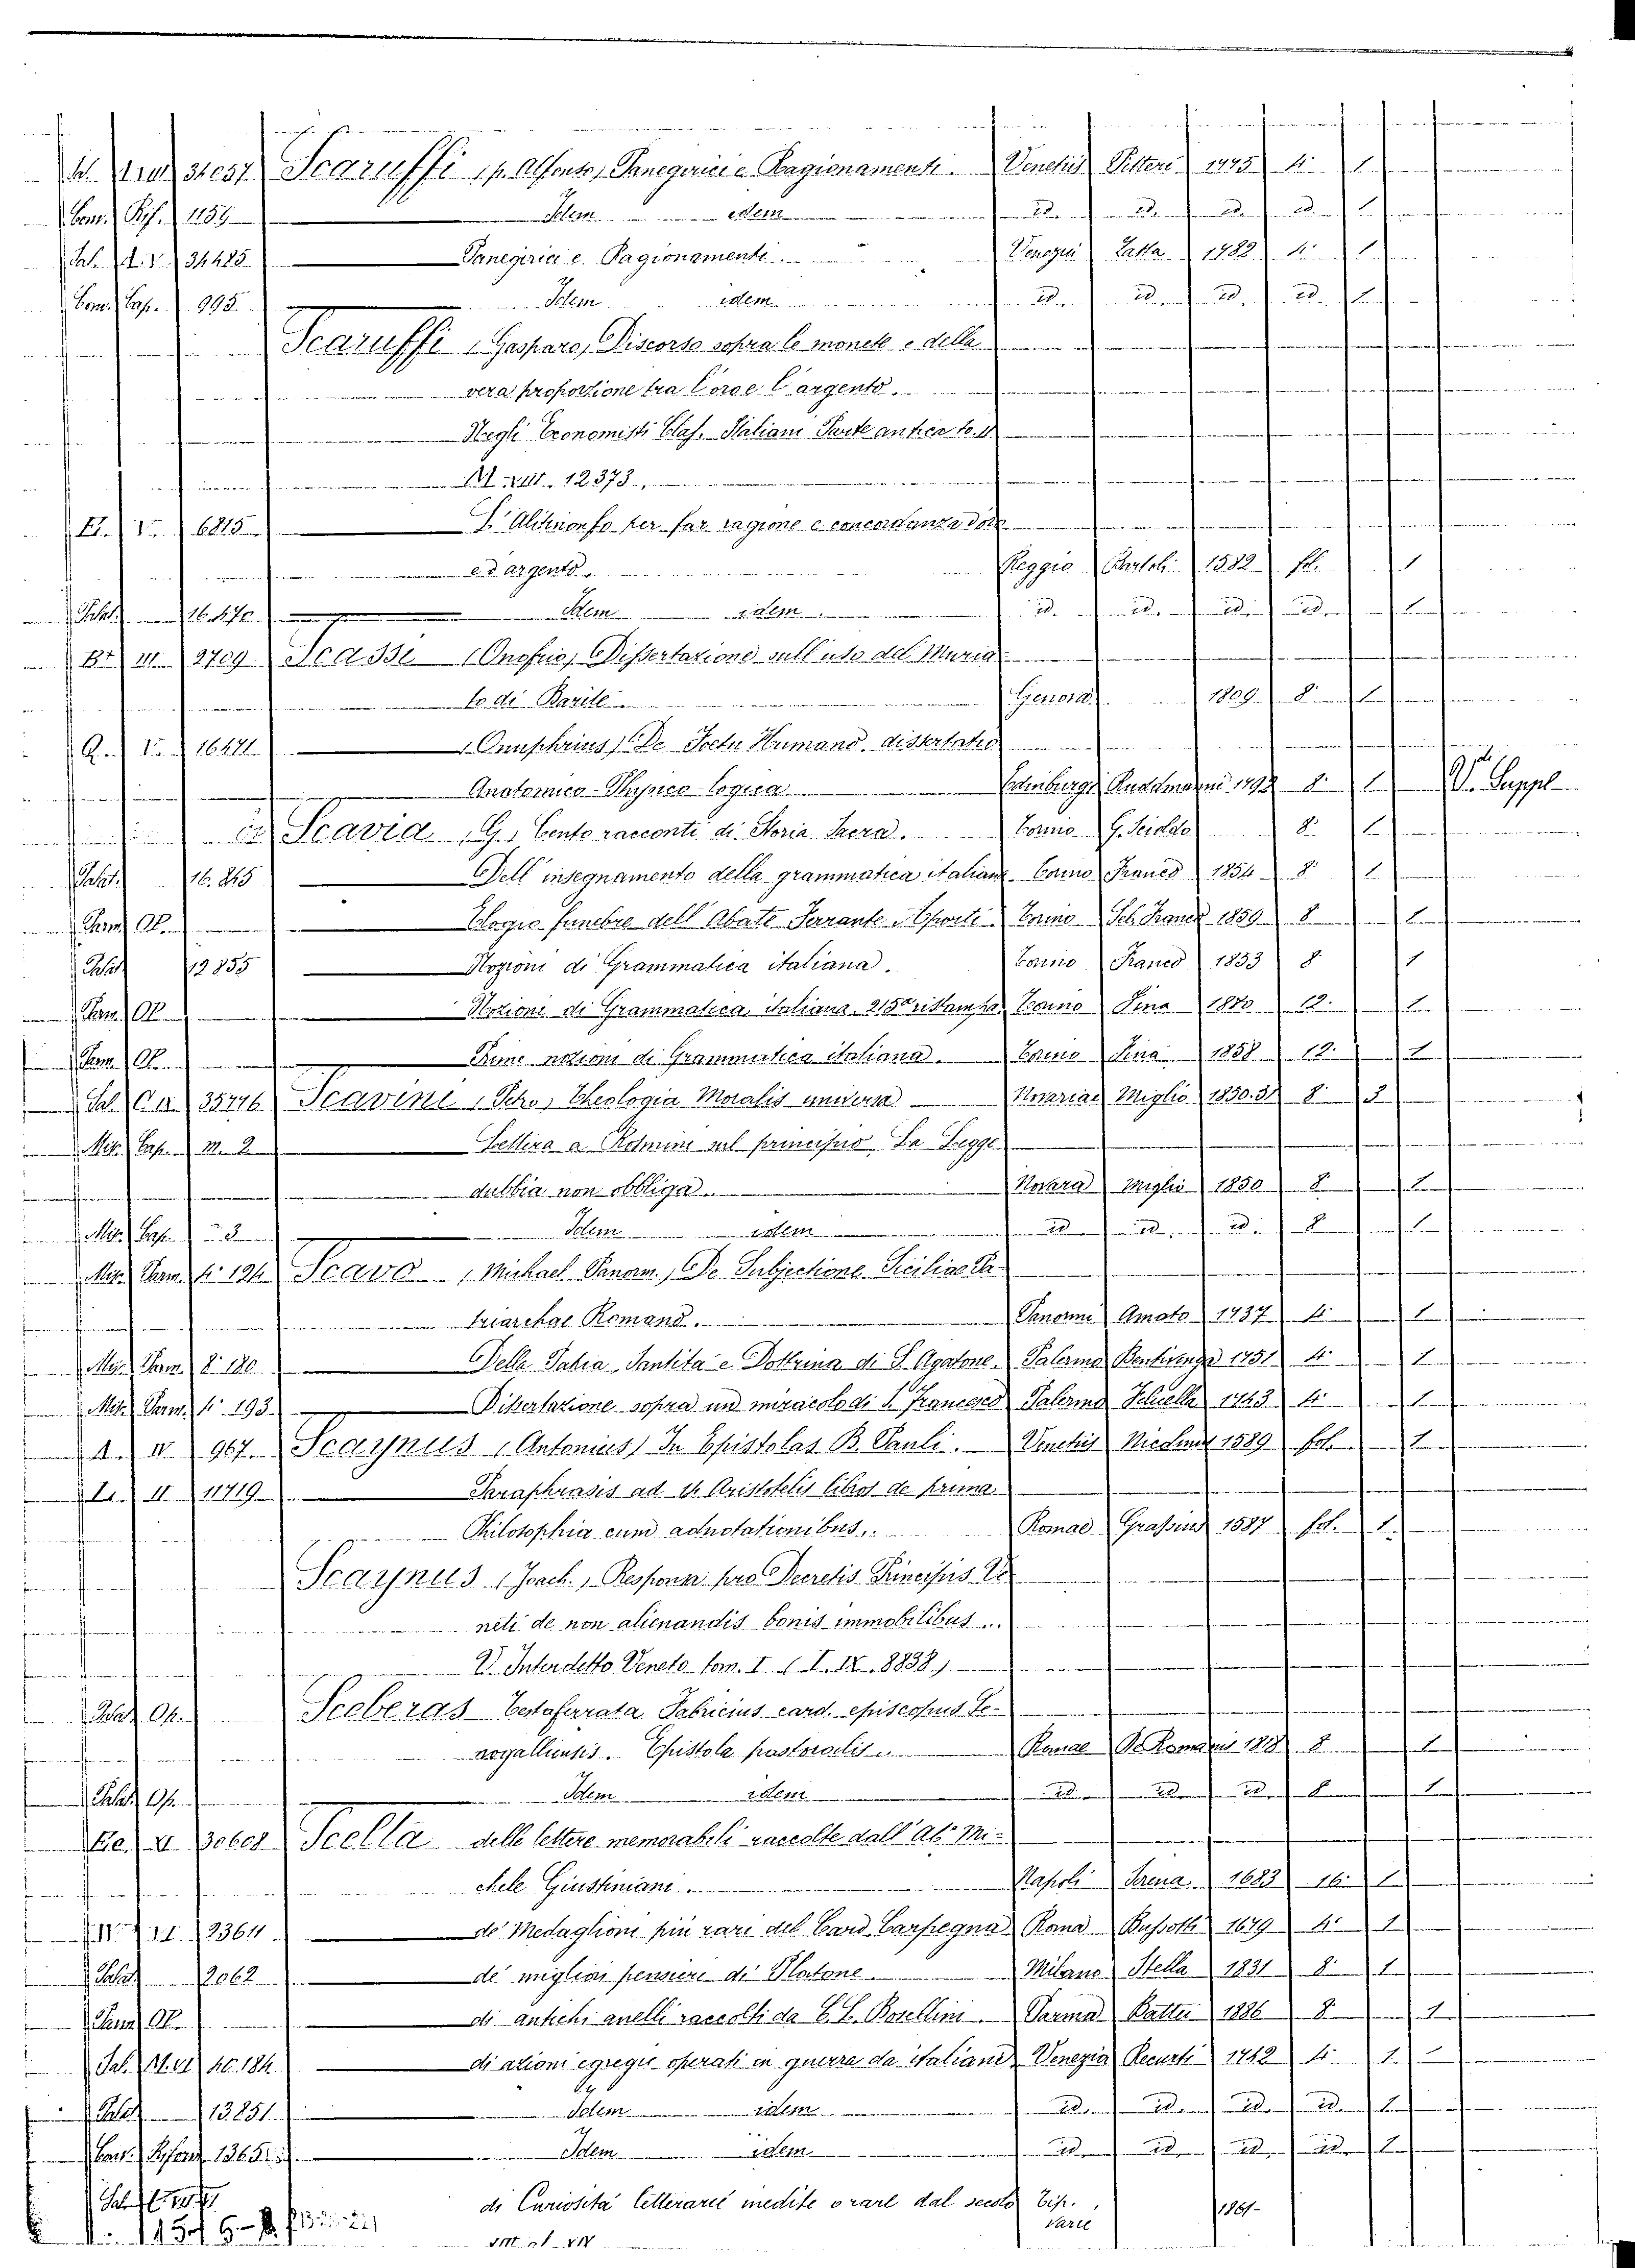 Scaruffi (p. Alfonso) Panegirici e Ragionamenti. Venetiis Pitteri 4. 1
Com. Rif. 1159 Idem idem id. id. id. id. 1
Sal. 34425 Panegirici e Ragionamenti Venezia Zatta 1782 4. 1
Com. Cap. 995 Idem idem id. id. id. id. 1
Scaruffi (Gasparo) Discorso sopra le monete e della
vera proportione tra l'oro e l'argento.
Negli Economisti Clas. Italiani Parte antica to. II
M. XIII. 12373.
V. 6815 L'Alitinonfo per far ragione e concordanza d'oro
e d'argento. Reggio Bartoli 1582 fol. 1
Palat. 16.470 Idem idem id. id. id. id. 1
III 2709 Scassi (Onofrio) Dissertazione sull'uso del Muria
to di Barite Genova 1809 8. 1
Q. V. 16471 (Onuphrius) De Foetu Humano dissertatio
Anatomico-Physico-logica 8. 1 V. Suppl
Scavia (G.) Cento racconti di Storia Sacra. Torino G. 8. 1
Palat. 16.245 Dell'insegnamento della grammatica italiana Torino Franco 1854 8. 1
Parm. Op. Elogio funebre dell'Abate Ferrante Aporti Torino Seb. Franco 1859 8 1
Palat. 12855 Nozioni di Grammatica italiana. Torino Franco 1853 8 1
Parm. Op. Nozioni di Grammatica italiana. 215a ristampa Torino 12. 1
Parm. Op. Prime nozioni di Grammatica italiana. Torino 1858 12. 1
Sal. Scavini (Petro) Theologia Moralis universa Novariae Miglio 1850.51 8. 3
Misc. Cap. M. 2 Lettera a Rosmini sul principio La Legge
dubbia non obbliga. Novara Miglio 1850 8. 1
Misc. Cap. 3 Idem idem id. id. id. 8 1
Misc. Parm. 4. 194 Scavo (Michael Panorm.) De Subjectione Siciliae Pa-
triarchae Romano. Panormi Amato 1737 4. 1
Misc. Parm. 8. 180 Della Patria Santità e Dottrina di S. Agatone Palermo Bentivenga 1751 4. 1
Misc. Parm. 4. 193 Dissertazione sopra un miracolo di S. Francesco Palermo 1743 4. 1
A. IV 967. Scaynus (Antonius) In Epistolas B. Pauli. Venetiis 1589 fol. 1
II 11719 Paraphrasis ad 14 Aristotelis libros de prima
Philosophia cum adnotationibus. Romae Grassius 1587 fol. 1
Scaynus (Joach.) Respons. pro Decretis Principis Ve
neti de non alienandis bonis immobilibus.
V. Interdetto Veneto tom. I (I. IX. 8838.)
Palat. Op. Sceberas Testaferrata Fabricius card. episcopus Se-
nogalliensis. Epistola pastoralis. Romae De Romanis 8 1
Palat. Op. Idem idem id. id. id. 8 1
Scelta delle lettere memorabili raccolte dall'Ab. Mi-
chele Giustiniani. Napoli 1683 16. 1
23611 de' Medaglioni più rari del Card. Carpegna Roma Bussotti 1679 4. 1
Palat. 2062 de' migliori pensieri di Platone. Milano Stella 1831 8. 1
Parm. Op. di antichi anelli raccolti da Bosellini. Parma Battei 1886 8 1
Sal. di azioni egregie operate in guerra da italiani Venezia Recurti 1742 4. 1
Palat. 13851 Idem idem id. id. id. id. 1
Idem idem id. id. id. id. 1
di Curiosità letterarie inedite o rare dal secolo Tip.
varie